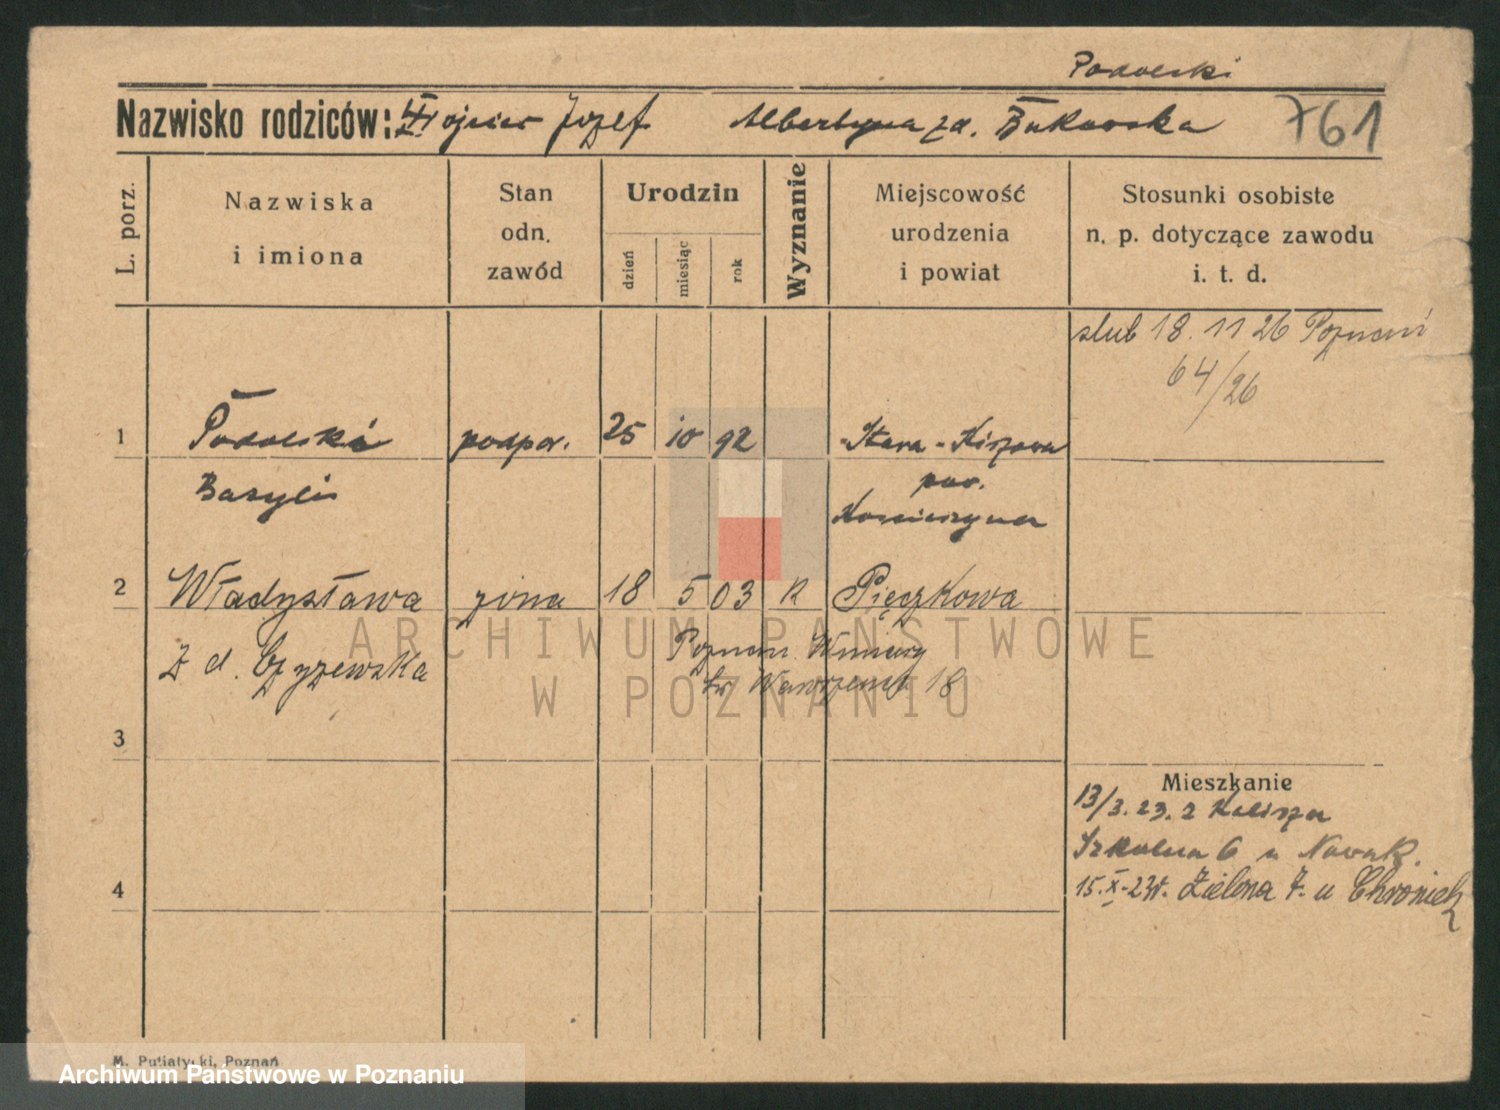 Podolski
Nazwisko rodziców: Józef Albertyna zd. Bukowska 761
L. porz.
Nazwiska i imiona
Stan odn. zawód
Urodzin
dzień miesiąc rok
Wyznanie
Miejscowość urodzenia i powiat
Stosunki osobiste n. p. dotyczące zawodu i. t. d.
slub 18. 11 26 Poznań
64/26
1 Podolski podpor. 25 10 92 Stara-Kiszewa
Bazyli pow.
Kościerzyna
2 Władysława żona 18 5 03 R Pięczkowa
z d. Czyżewska Poznań Winiary
18
3
Mieszkanie
13/3. 23. z Kalisza
Szkolna 6 u Nowak.
4 15.X-23r. Zielona 7. u
M. Putiatycki, Poznań
ARCHIWUM PAŃSTWOWE
W POZNANIU
Archiwum Państwowe w Poznaniu